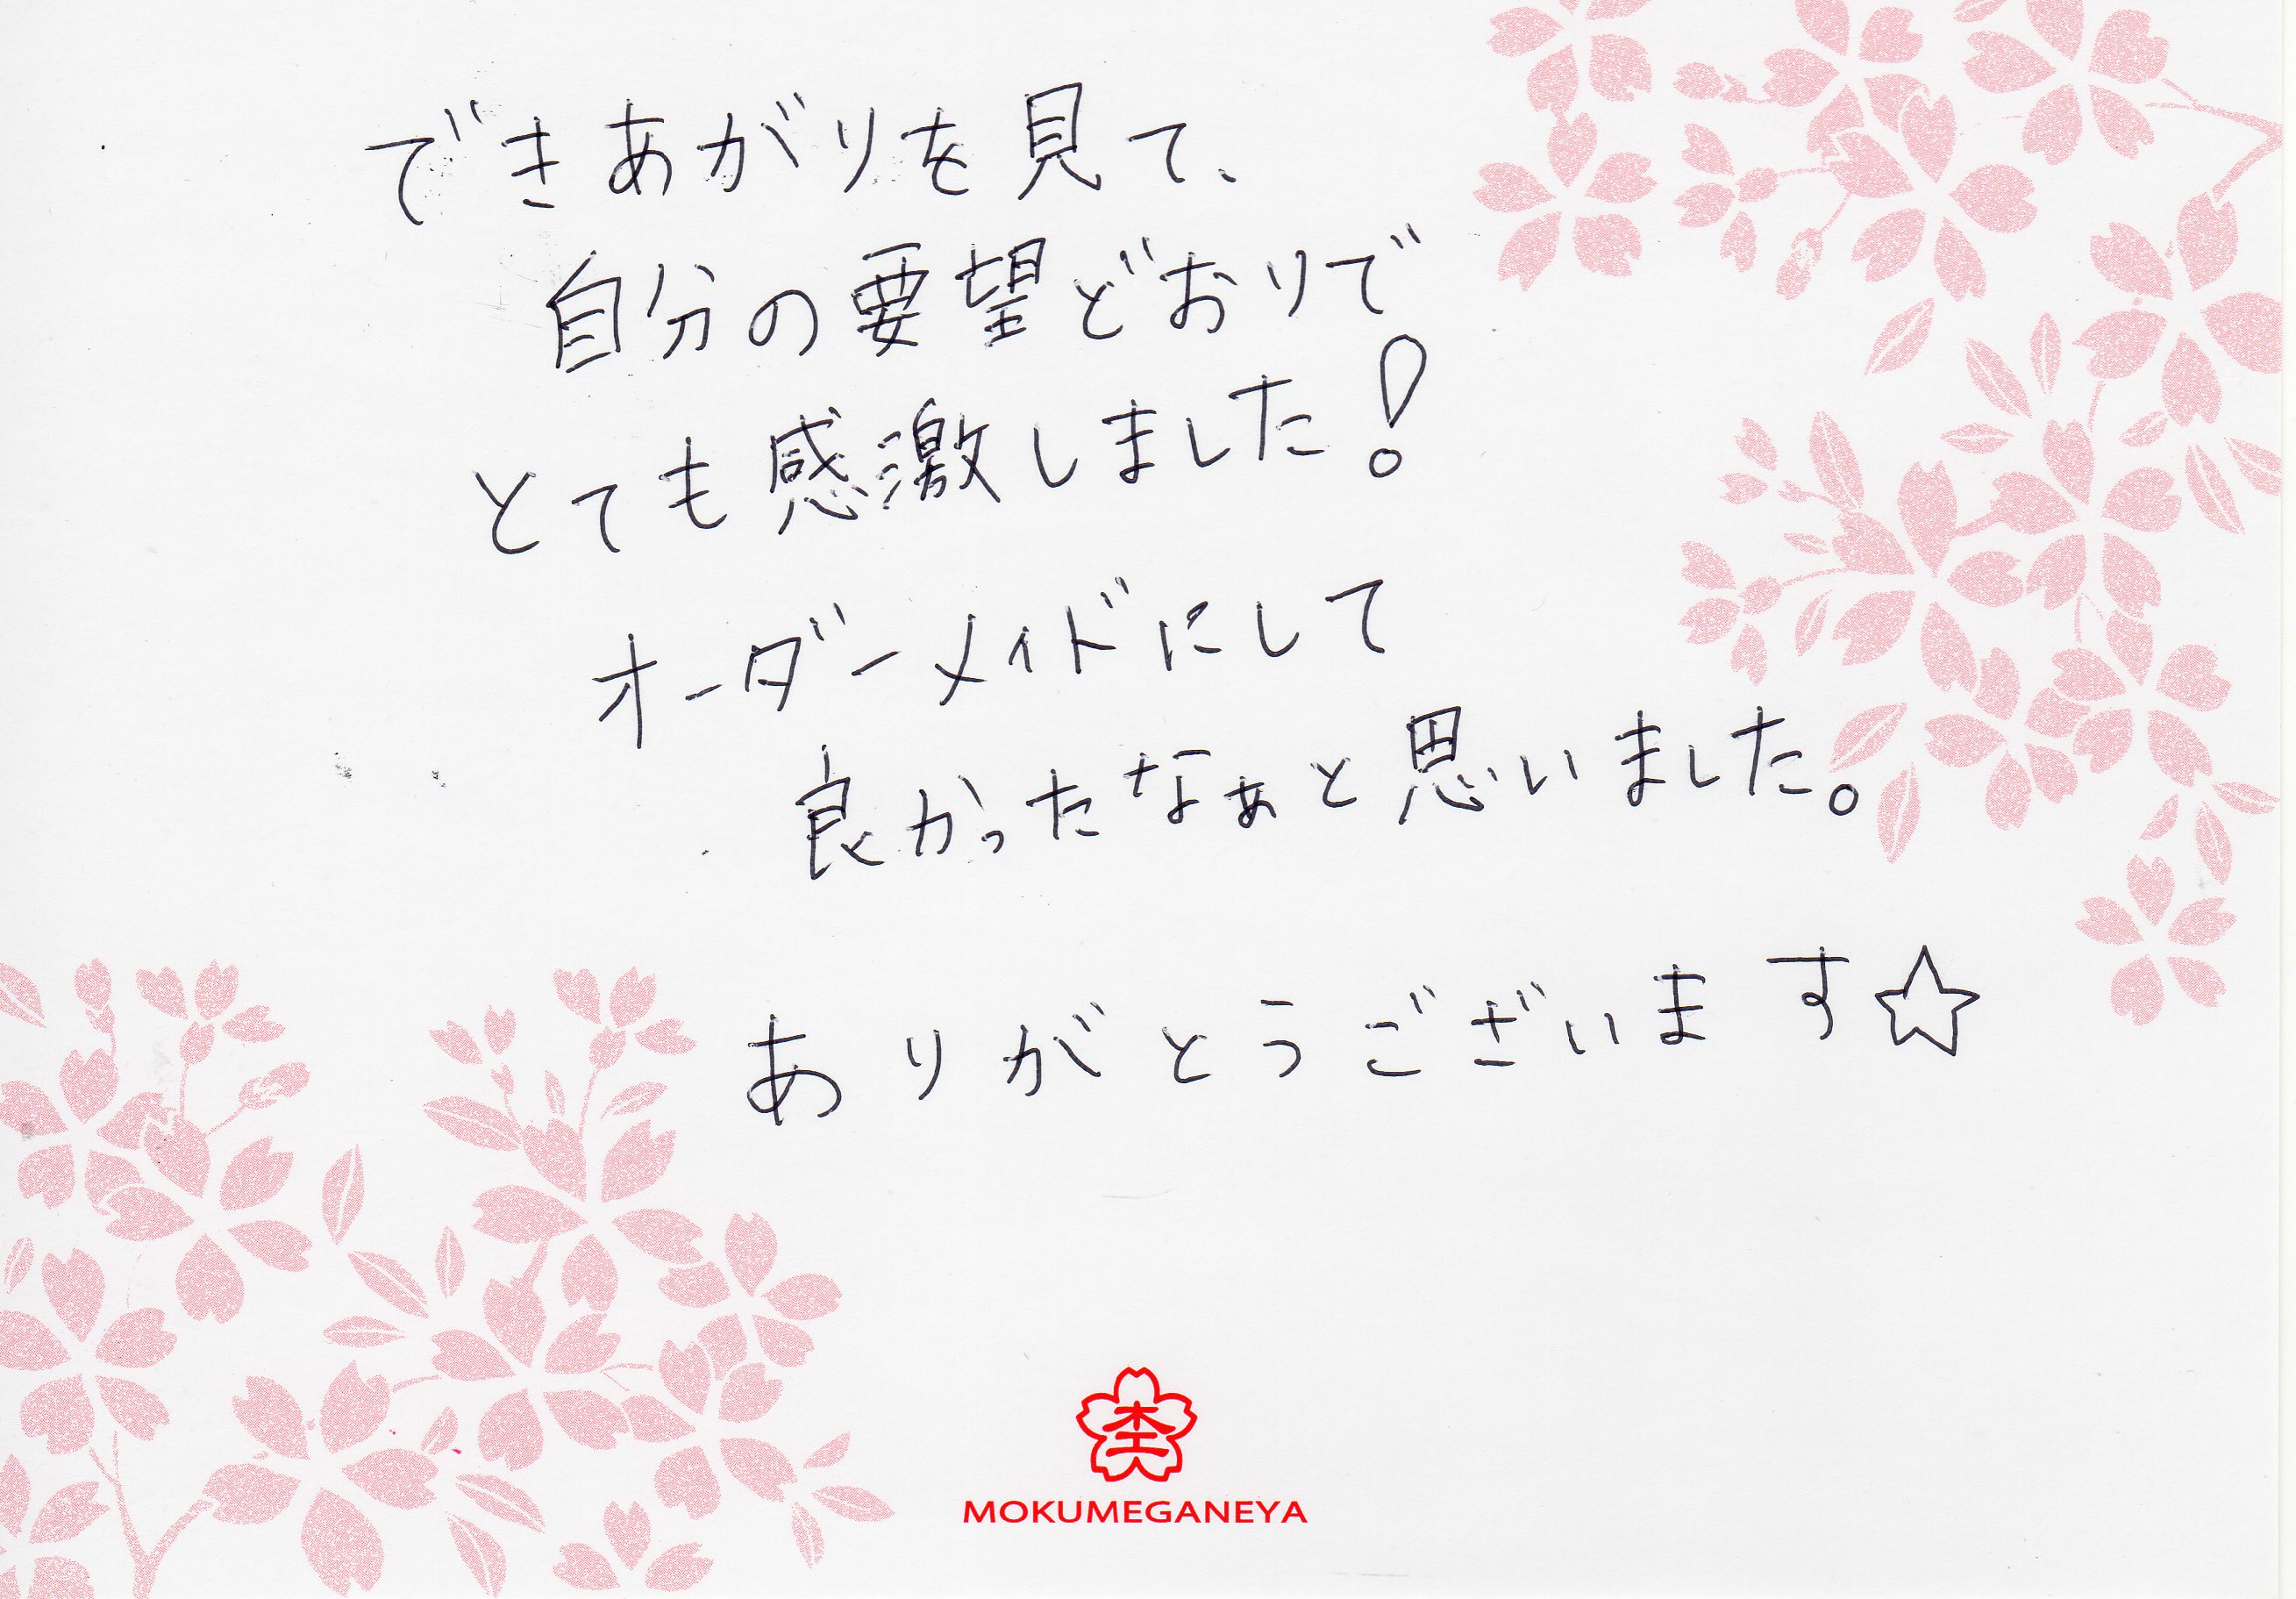 できあがりを見て、
自分の要望どおりで
とても感激しました!
オーダーメイドにして
良かったなぁと思いました。
ありがとうございます☆
杢
MOKUMEGANEYA